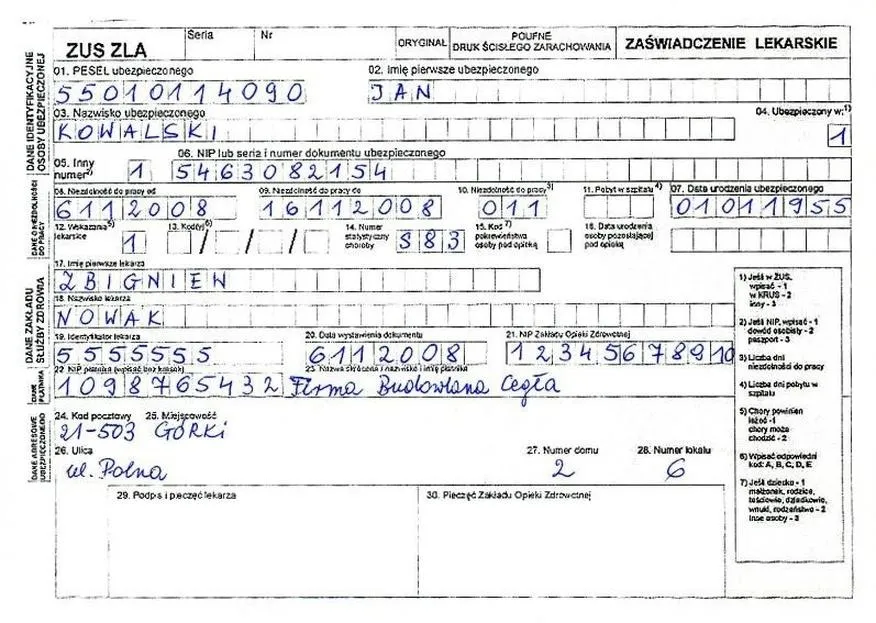 ZUS ZLA
Seria
Nr
ORYGINAŁ
POUFNE
DRUK ŚCISŁEGO ZARACHOWANIA
ZAŚWIADCZENIE LEKARSKIE
DANE IDENTYFIKACYJNE
OSOBY UBEZPIECZONEJ
01. PESEL ubezpieczonego
55010114090
02. Imię pierwsze ubezpieczonego
JAN
03. Nazwisko ubezpieczonego
KOWALSKI
04. Ubezpieczony w:1)
1
05. Inny
numer2)
1
06. NIP lub seria i numer dokumentu ubezpieczonego
5463082154
DANE O NIEZDOLNOŚCI
DO PRACY
08. Niezdolność do pracy od
6112008
09. Niezdolność do pracy do
16112008
10. Niezdolność do pracy3)
011
11. Pobyt w szpitalu4)
07. Data urodzenia ubezpieczonego
01011955
12. Wskazania5)
lekarskie
1
13. Kod(y)6)
/ / /
14. Numer
statystyczny
choroby
S83
15. Kod7)
pokrewieństwa
osoby pod opieką
16. Data urodzenia
osoby pozostającej
pod opieką
DANE ZAKŁADU
SŁUŻBY ZDROWIA
17. Imię pierwsze lekarza
ZBIGNIEW
18. Nazwisko lekarza
NOWAK
19. Identyfikator lekarza
5555555
20. Data wystawienia dokumentu
6112008
21. NIP Zakładu Opieki Zdrowotnej
12345678910
DANE
PŁATNIKA
22. NIP płatnika (wpisać bez kresek)
1098765432
23. Nazwa skrócona / nazwisko i imię płatnika
Firma Budowlana Cegła
DANE ADRESOWE
UBEZPIECZONEGO
24. Kod pocztowy
21-503
25. Miejscowość
GÓRKI
26. Ulica
ul. Polna
27. Numer domu
2
28. Numer lokalu
6
29. Podpis i pieczęć lekarza
30. Pieczęć Zakładu Opieki Zdrowotnej
1) Jeśli w ZUS,
wpisać - 1
w KRUS - 2
inny - 3
2) Jeśli NIP, wpisać - 1
dowód osobisty - 2
paszport - 3
3) Liczba dni
niezdolności do pracy
4) Liczba dni pobytu w
szpitalu
5) Chory powinien
leżeć -1
chory może
chodzić - 2
6) Wpisać odpowiedni
kod: A, B, C, D, E
7) Jeśli dziecko - 1
małżonek, rodzice,
teściowie, dziadkowie,
wnuki, rodzeństwo - 2
inne osoby - 3